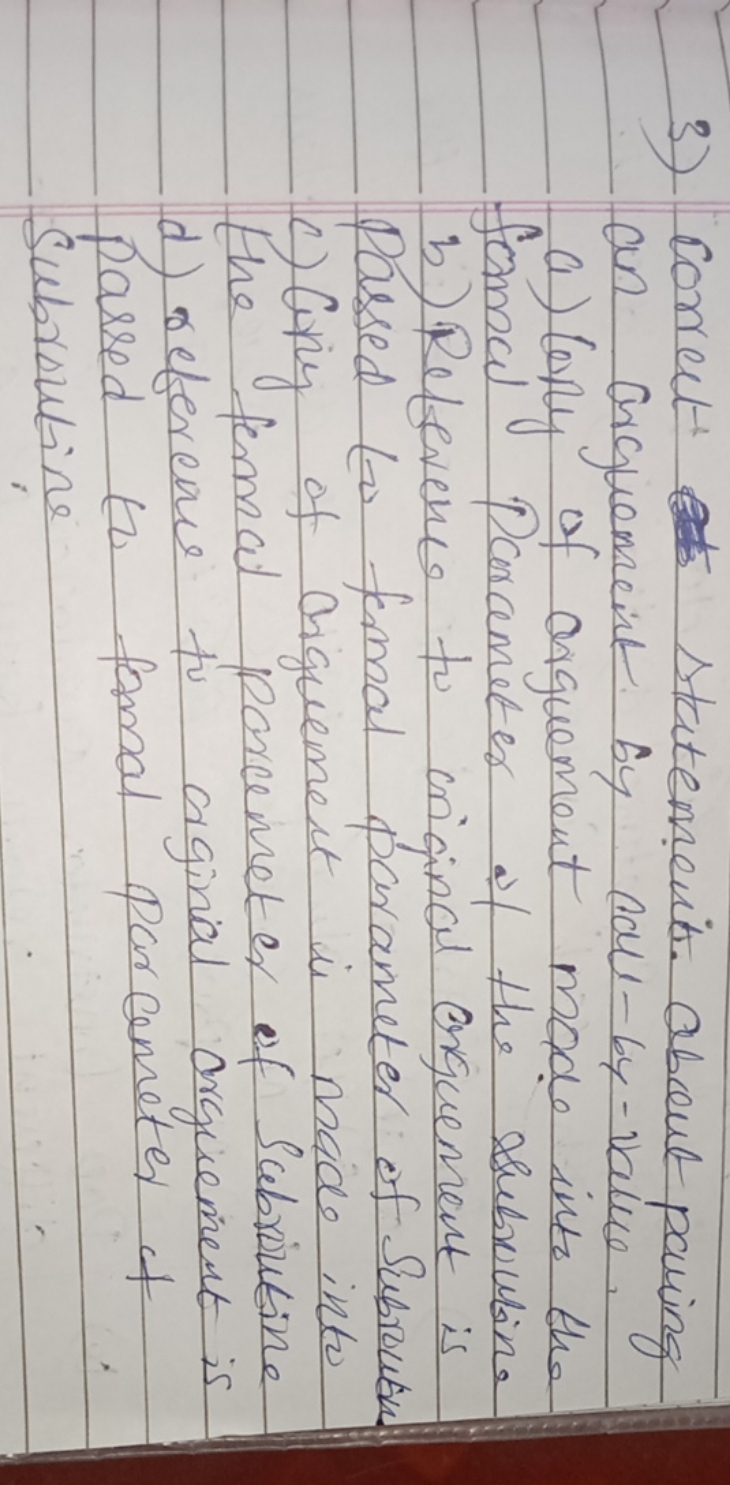 3) Correct statements about passing
an arguement by call-by-value,
a) Copy of arguement made into the
formal parameter of the subroutine
b) Reference to original arguement is
passed to formal parameter of subroutine
c) Copy of arguement is made into
the formal parameter of subroutine
d) reference to orginal arguement is
passed to formal parameter of
subroutine